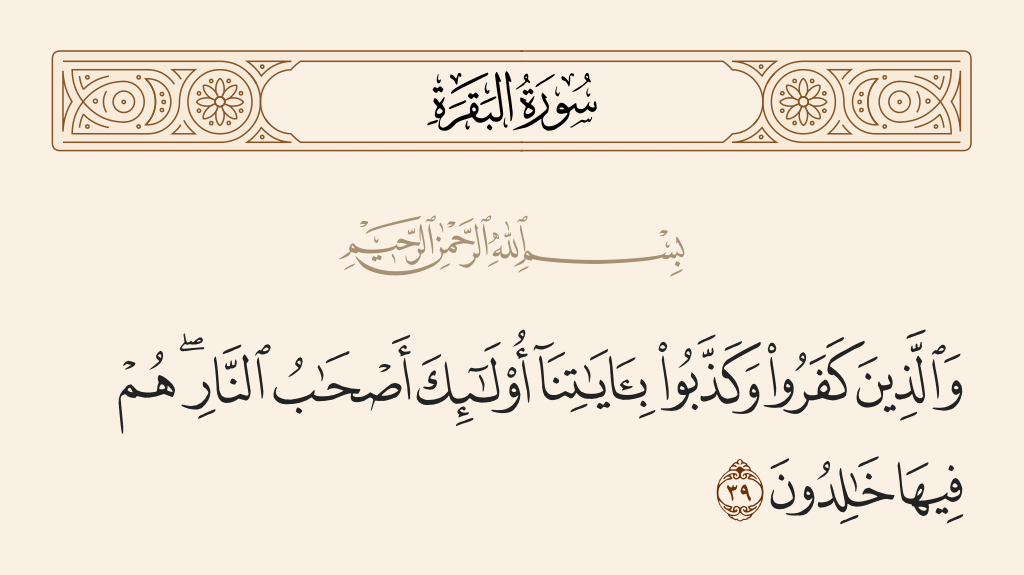 سُورَةُ البَقَرَةِ
بِسْمِ ٱللَّهِ ٱلرَّحْمَٰنِ ٱلرَّحِيمِ
وَٱلَّذِينَ كَفَرُوا۟ وَكَذَّبُوا۟ بِـَٔايَـٰتِنَآ أُو۟لَـٰٓئِكَ أَصْحَـٰبُ ٱلنَّارِ ۖ هُمْ
فِيهَا خَـٰلِدُونَ ٣٩